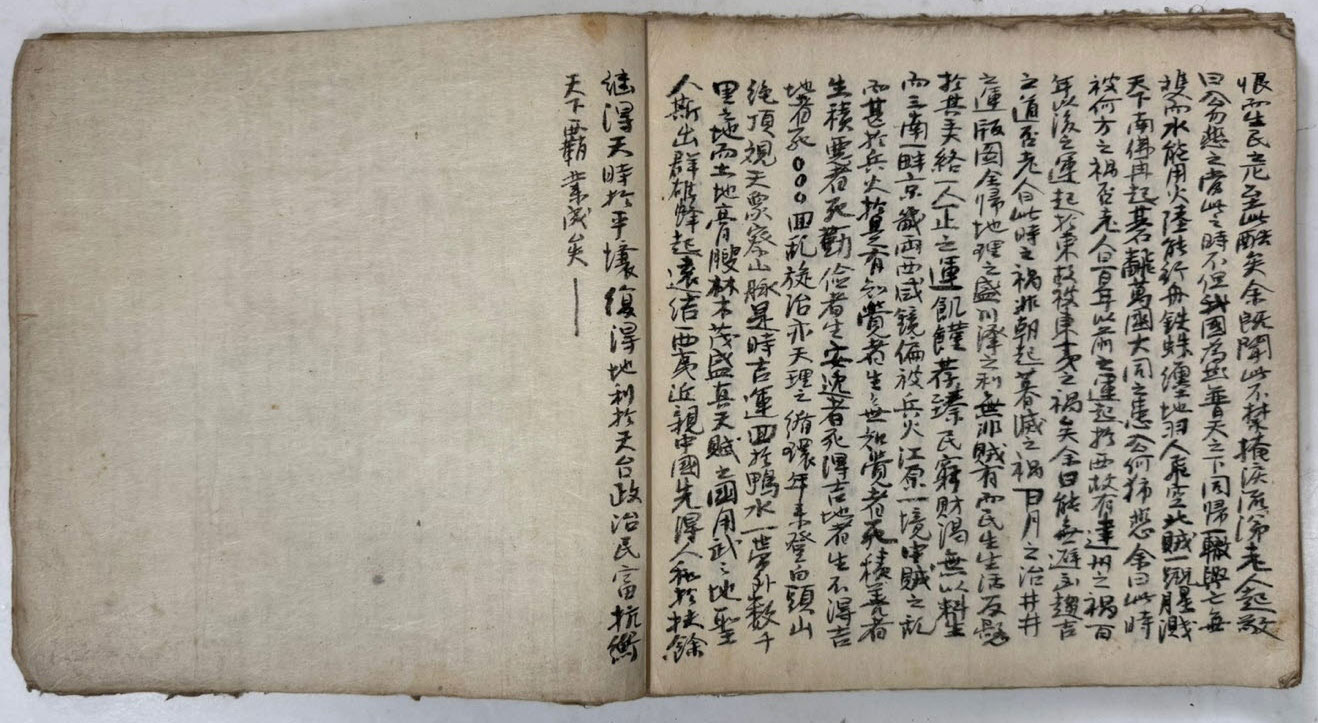 恨而生民之厄至此酷矣余旣聞此不禁掩淚流涕老人起敬
曰公勿悲之當此之時不但我國爲然普天之下同歸一轍興亡無
常而水能用火陸能行舟鐵蛛纏地羽人乘空北賊一蹶腥濺
天下南佛再起碁石離萬國大同之患公何獨悲余曰此時
被何方之禍否老人曰百年以前之運起於西故有達州之禍百
年以後之運起於東故被東夷之禍矣余曰能無避凶趨吉
之道否老人曰此時之禍非朝起暮滅之禍日月之治井井
之運版圖全歸地理之盛川澤之利無非賊有而民生生活反懸
於其手絡一人止之運飢饉荐臻民窮財渴無以料生
而三南一畔京畿兩西咸鏡偏被兵火江原一境中賊之亂
而甚於兵火於是有知覺者生無知覺者死積善者
生積惡者死勤儉者生安逸者死得吉地者生不得吉
地者死〇〇〇回亂旋治亦天理之循環年来登白頭山
絶頂視天象察山脉是時吉運回於鴨水一帶外數千
里之地而土地膏腴林木茂盛眞天賦之國用武之地聖
人斯出群雄蜂起遠結西夷近親中國先得人和於扶餘
継得天時於平壤復得地利於天台政治民富抗衡
天下霸業成矣